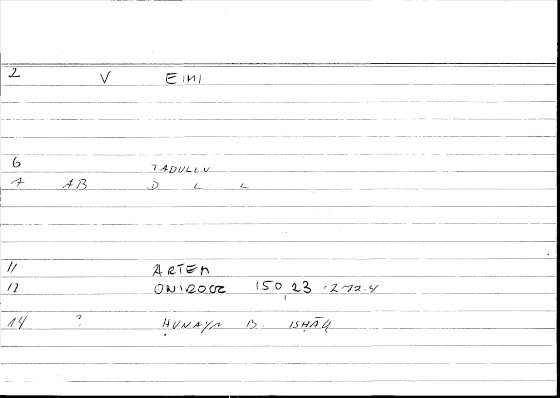 2 V EIMI
6 TADULLU
7 AB D L L
11 ARTEM
12 ONIROCR 150 23
14 ? ḤUNAYN B. ISḤĀQ